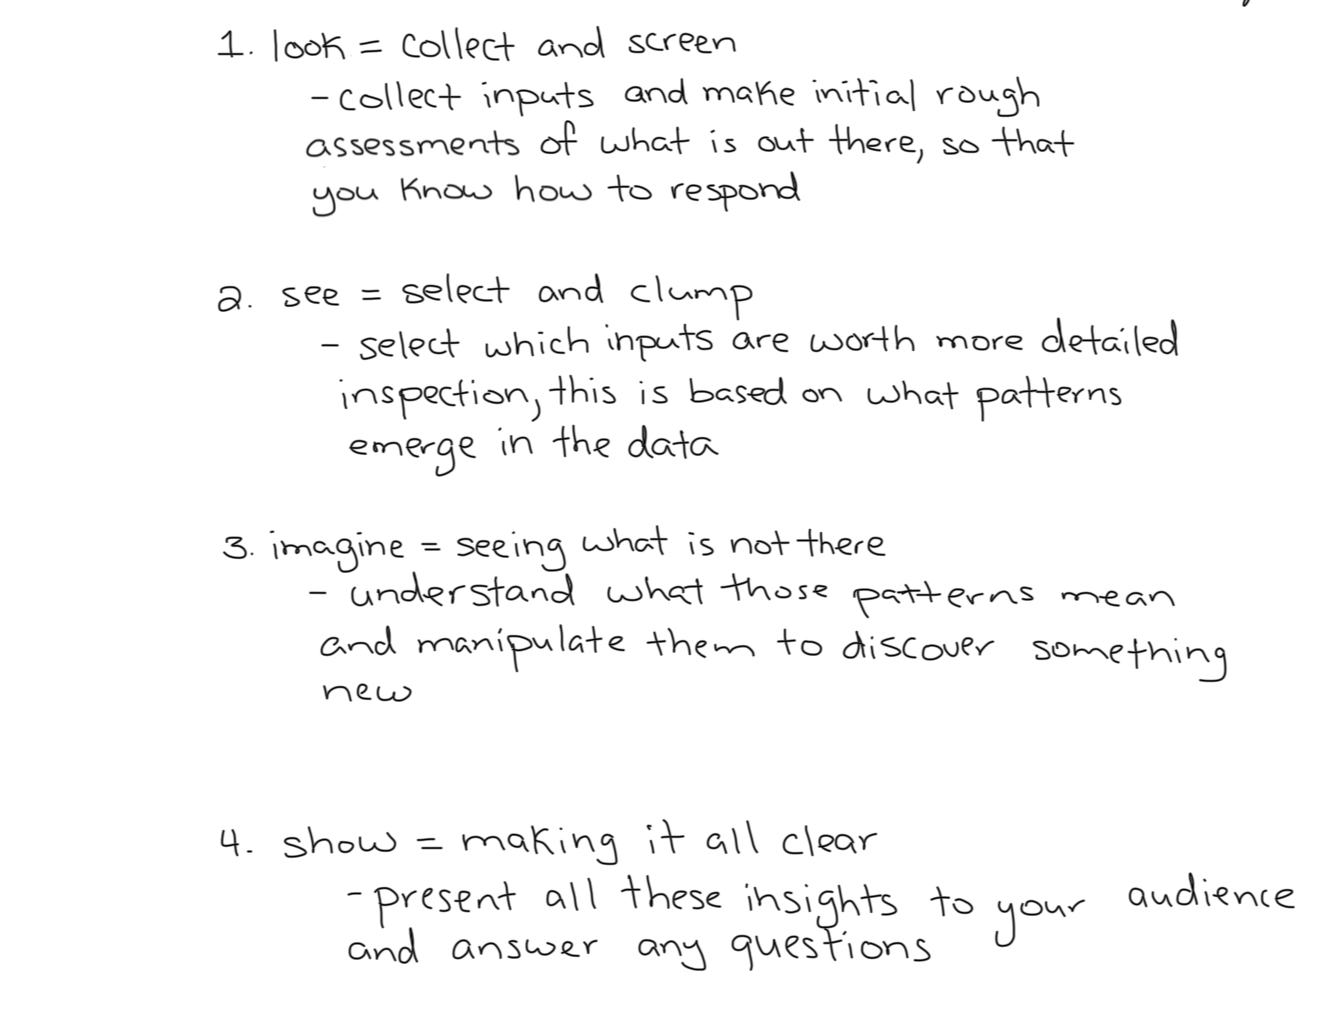 1. look = collect and screen
- collect inputs and make initial rough
assessments of what is out there, so that
you know how to respond
2. see = select and clump
- select which inputs are worth more detailed
inspection, this is based on what patterns
emerge in the data
3. imagine = seeing what is not there
- understand what those patterns mean
and manipulate them to discover something
new
4. show = making it all clear
- present all these insights to your audience
and answer any questions